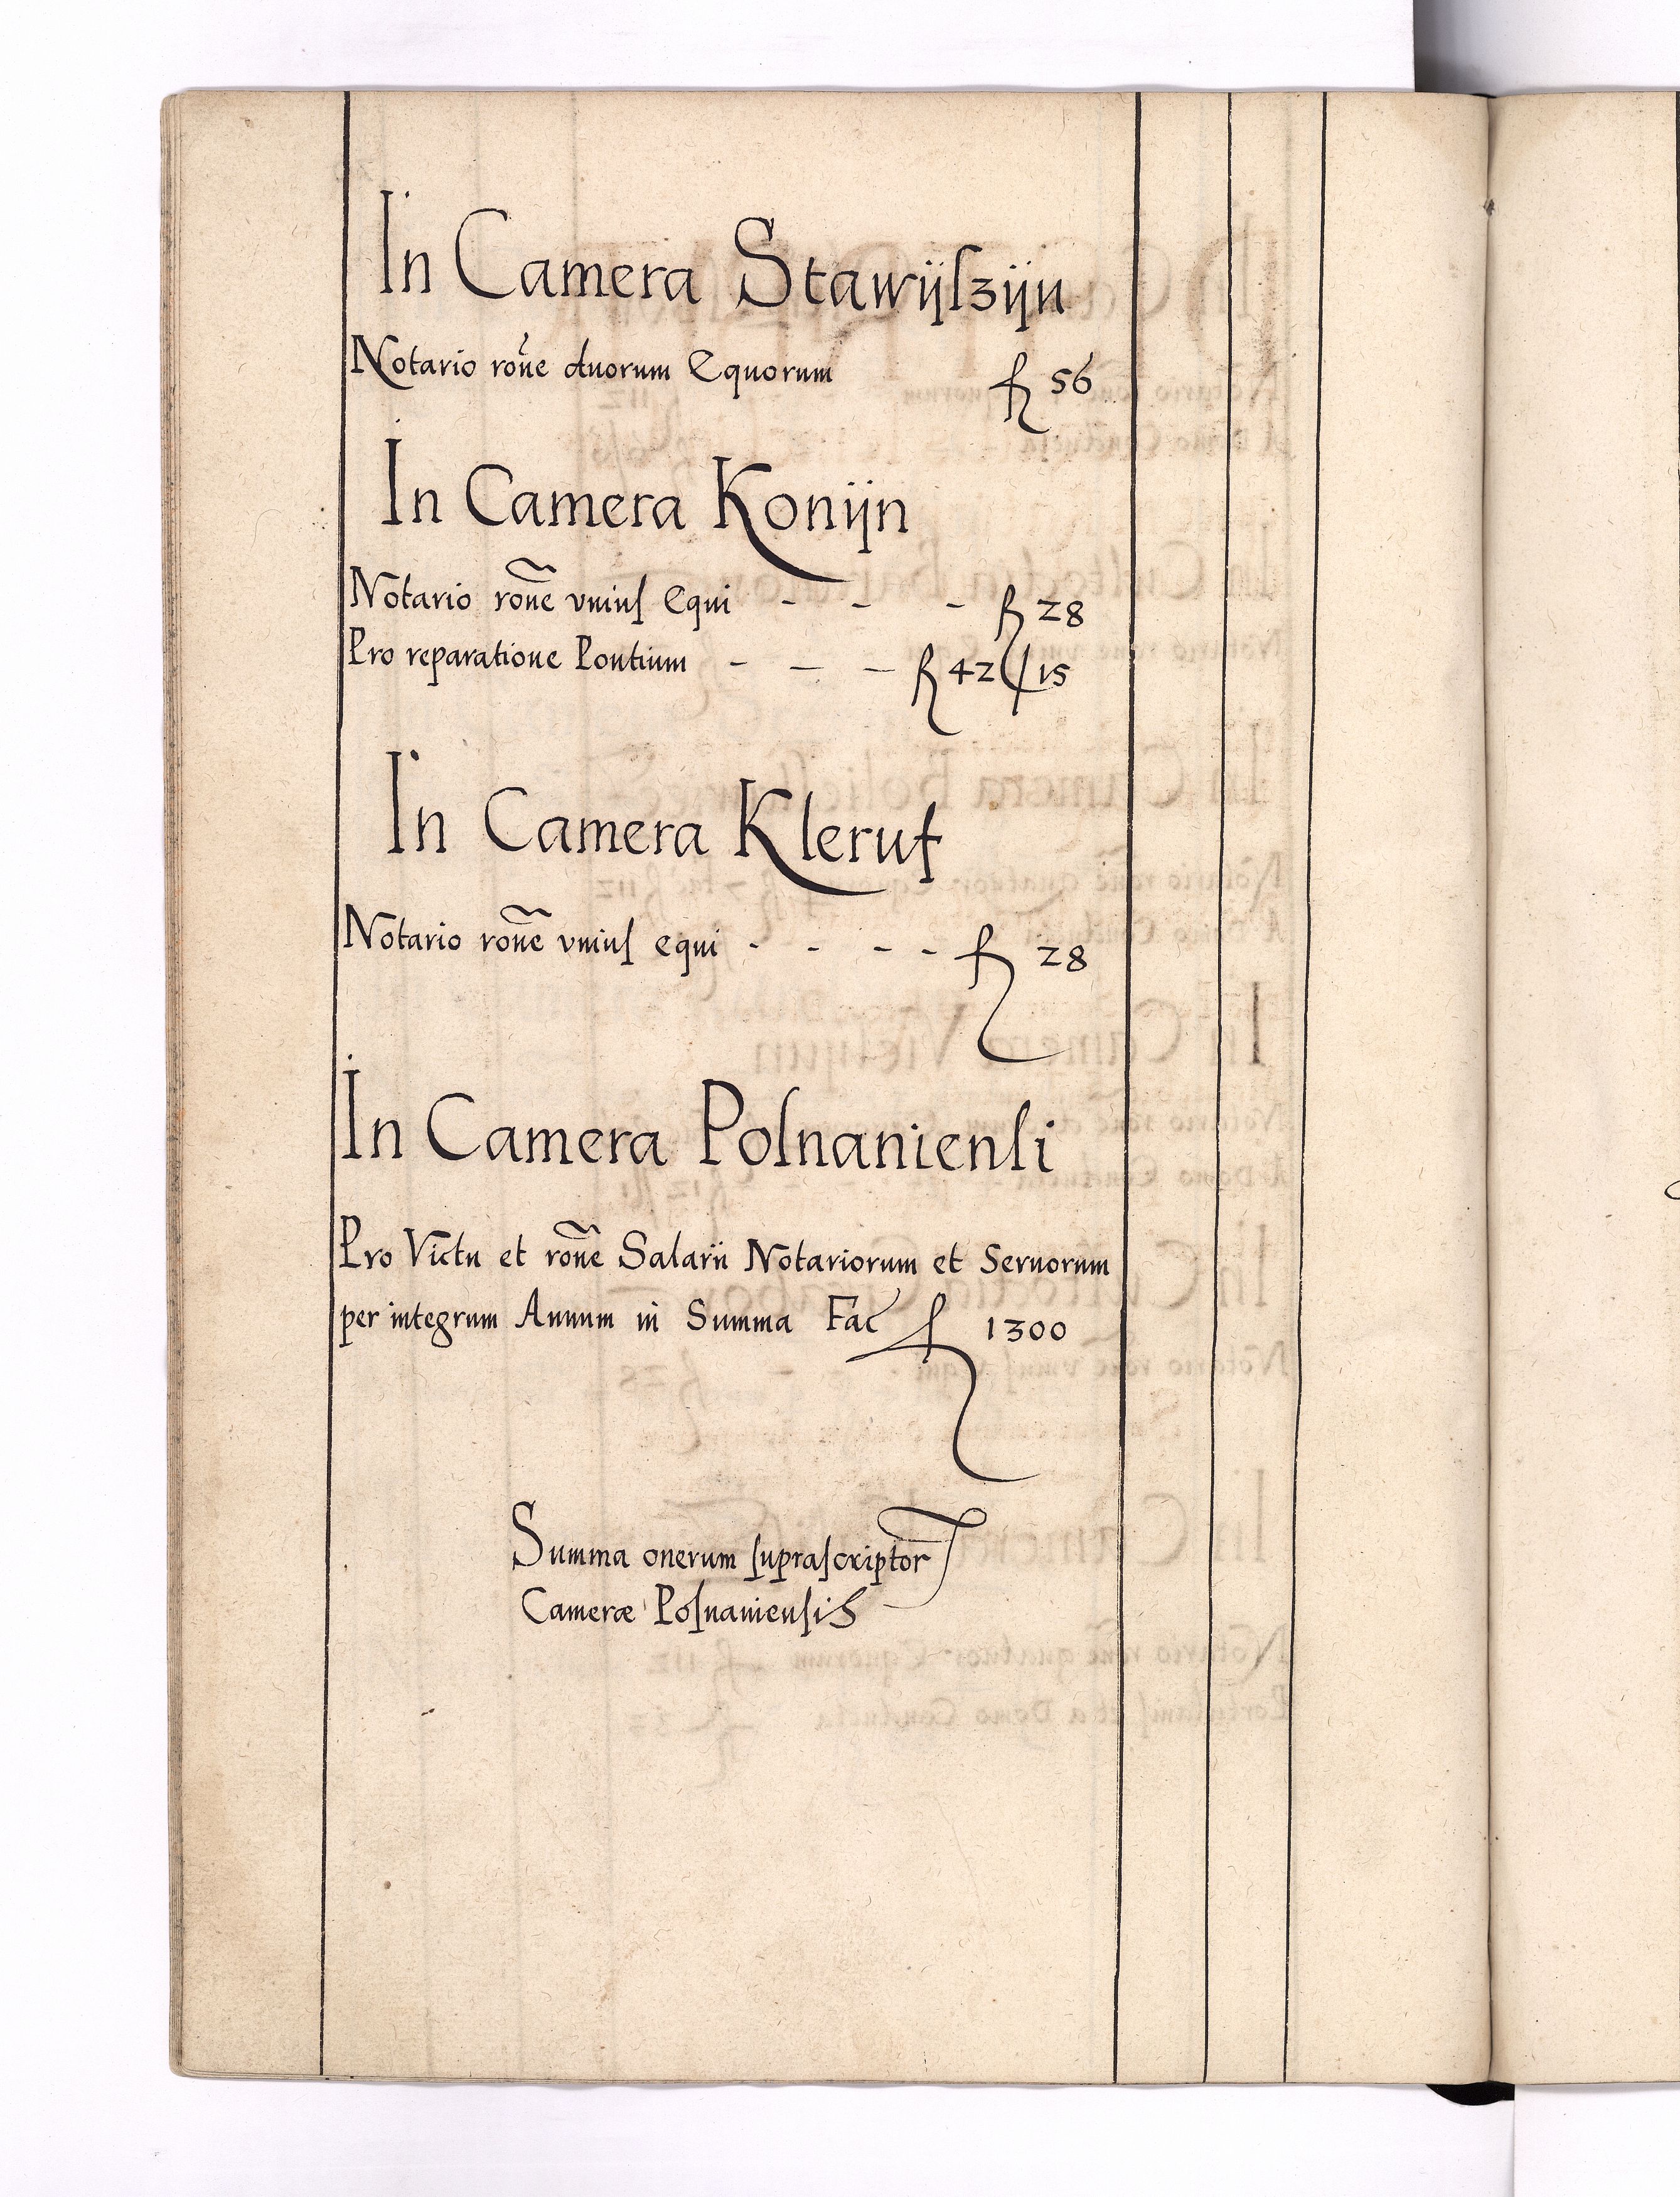 In Camera Stawijſzijn
Notario rōne duorum Equorum fl 56
In Camera Konijn
Notario rōne vniuſ Equi - - - fl 28
Pro reparatione Pontium - - - fl 42 15
In Camera Kleruf
Notario rōne vniuſ equi - - - - fl 28
In Camera Poſnanienſi
Pro Victu et rōne Salarii Notariorum et Seruorum
per integrum Annum in Summa Fac fl 1300
Summa onerum ſupraſcriptor
Cameræ Poſnanienſis